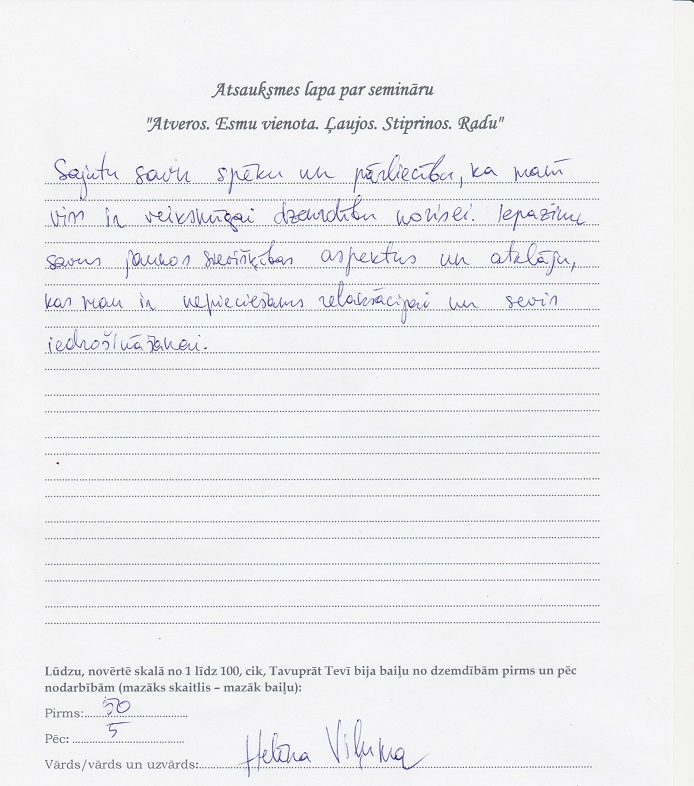 Atsauksmes lapa par semināru
"Atveros. Esmu vienota. Ļaujos. Stiprinos. Radu"
Sajutu savu spēku un pārliecību, ka manī
viss ir veiksmīgai dzemdību norisei. Iepazinu
savus jaunos sievišķības aspektus un atklāju,
kas man ir nepieciešams relaksācijai un sevis
iedrošināšanai.
Lūdzu, novērtē skalā no 1 līdz 100, cik, Tavuprāt Tevī bija baiļu no dzemdībām pirms un pēc
nodarbībām (mazāks skaitlis – mazāk baiļu):
Pirms: 50
Pēc: 5
Vārds/vārds un uzvārds: Helēna